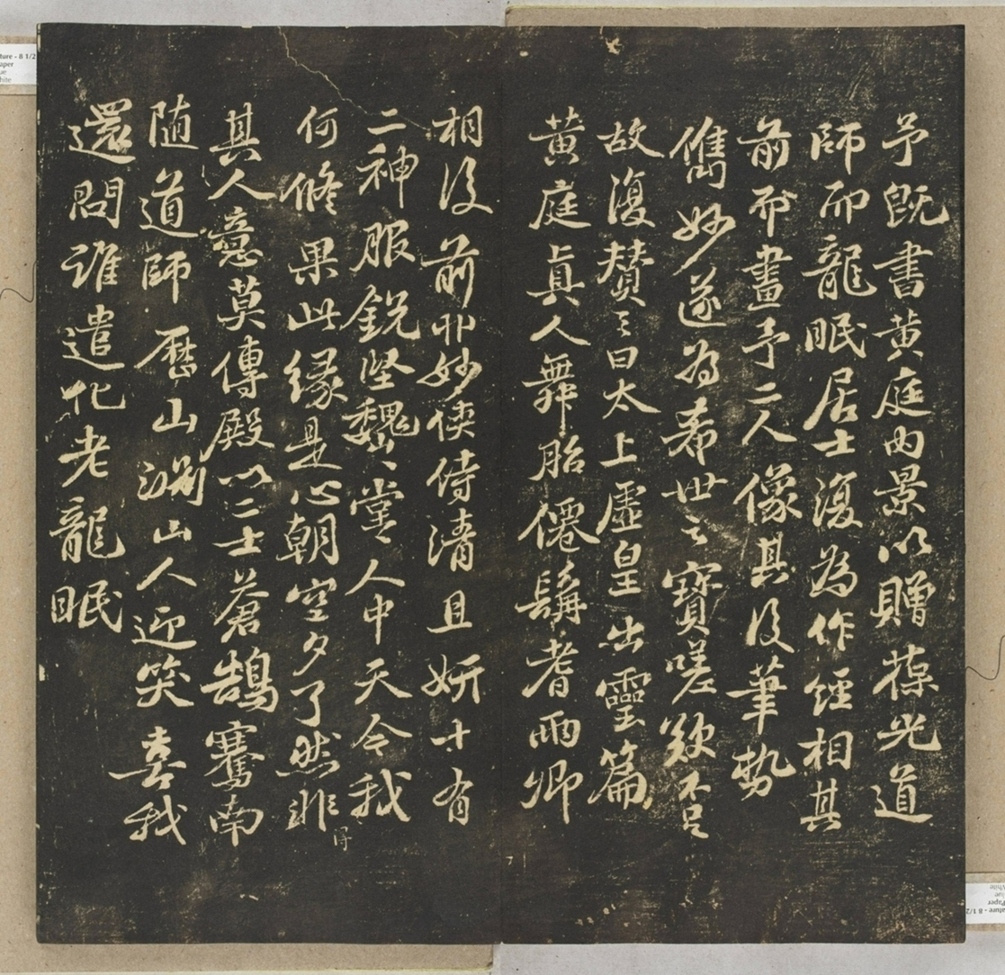 予既書黄庭内景以贈葆光道
師而龍眠居士復為作經相其
前而畫予二人像其後筆勢
雋妙遂為希世之寶嗟歎不足
故復賛之曰太上虛皇出靈篇
黄庭真人舞胎僊髯耆兩卿
相後前丱妙俠侍清且妍十有
二神服銳堅巍巍堂堂人中天令我
何脩果此緣是心朝空夕了然非
其人意莫傳殿以二士蒼鵠騫南
随道師歷山淵山人迎笑喜我
還問誰遣化老龍眠